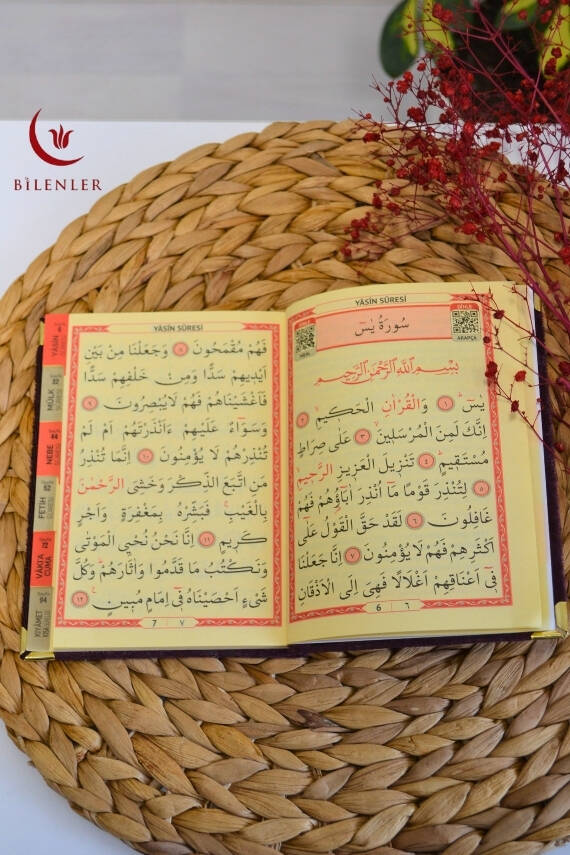 BİLENLER
YÂSÎN SÛRESİ
DİNLE
ARAPÇA
سُورَةُ يٰسٓ
بِسْمِ اللّٰهِ الرَّحْمٰنِ الرَّحِيمِ
يٰسٓ ﴿١﴾ وَالْقُرْاٰنِ الْحَكِيمِ ﴿٢﴾
اِنَّكَ لَمِنَ الْمُرْسَلِينَ ﴿٣﴾ عَلٰى صِرَاطٍ
مُسْتَقِيمٍ ﴿٤﴾ تَنْزِيلَ الْعَزِيزِ الرَّحِيمِ
﴿٥﴾ لِتُنْذِرَ قَوْمًا مَٓا اُنْذِرَ اٰبَٓاؤُهُمْ فَهُمْ
غَافِلُونَ ﴿٦﴾ لَقَدْ حَقَّ الْقَوْلُ عَلٰٓى
اَكْثَرِهِمْ فَهُمْ لَا يُؤْمِنُونَ ﴿٧﴾ اِنَّا جَعَلْنَا
فِٓى اَعْنَاقِهِمْ اَغْلَالًا فَهِىَ اِلَى الْاَذْقَانِ
6 ٦
YÂSÎN SÛRESİ
فَهُمْ مُقْمَحُونَ ﴿٨﴾ وَجَعَلْنَا مِنْ بَيْنِ
اَيْدِيهِمْ سَدًّا وَمِنْ خَلْفِهِمْ سَدًّا
فَاَغْشَيْنَاهُمْ فَهُمْ لَايُبْصِرُونَ ﴿٩﴾
وَسَوَٓاءٌ عَلَيْهِمْ ءَاَنْذَرْتَهُمْ اَمْ لَمْ
تُنْذِرْهُمْ لَا يُؤْمِنُونَ ﴿١٠﴾ اِنَّمَا تُنْذِرُ
مَنِ اتَّبَعَ الذِّكْرَ وَخَشِىَ الرَّحْمٰنَ
بِالْغَيْبِ فَبَشِّرْهُ بِمَغْفِرَةٍ وَاَجْرٍ
كَرِيمٍ ﴿١١﴾ اِنَّا نَحْنُ نُحْيِى الْمَوْتٰى
وَنَكْتُبُ مَا قَدَّمُوا وَاٰثَارَهُمْ وَكُلَّ
شَىْءٍ اَحْصَيْنَاهُ فِٓى اِمَامٍ مُبِينٍ ﴿١٢﴾
7 ٧
YÂSÎN
MÜLK
NEBE
FETİH
VÂKIA
CUMA
KIYÂMET